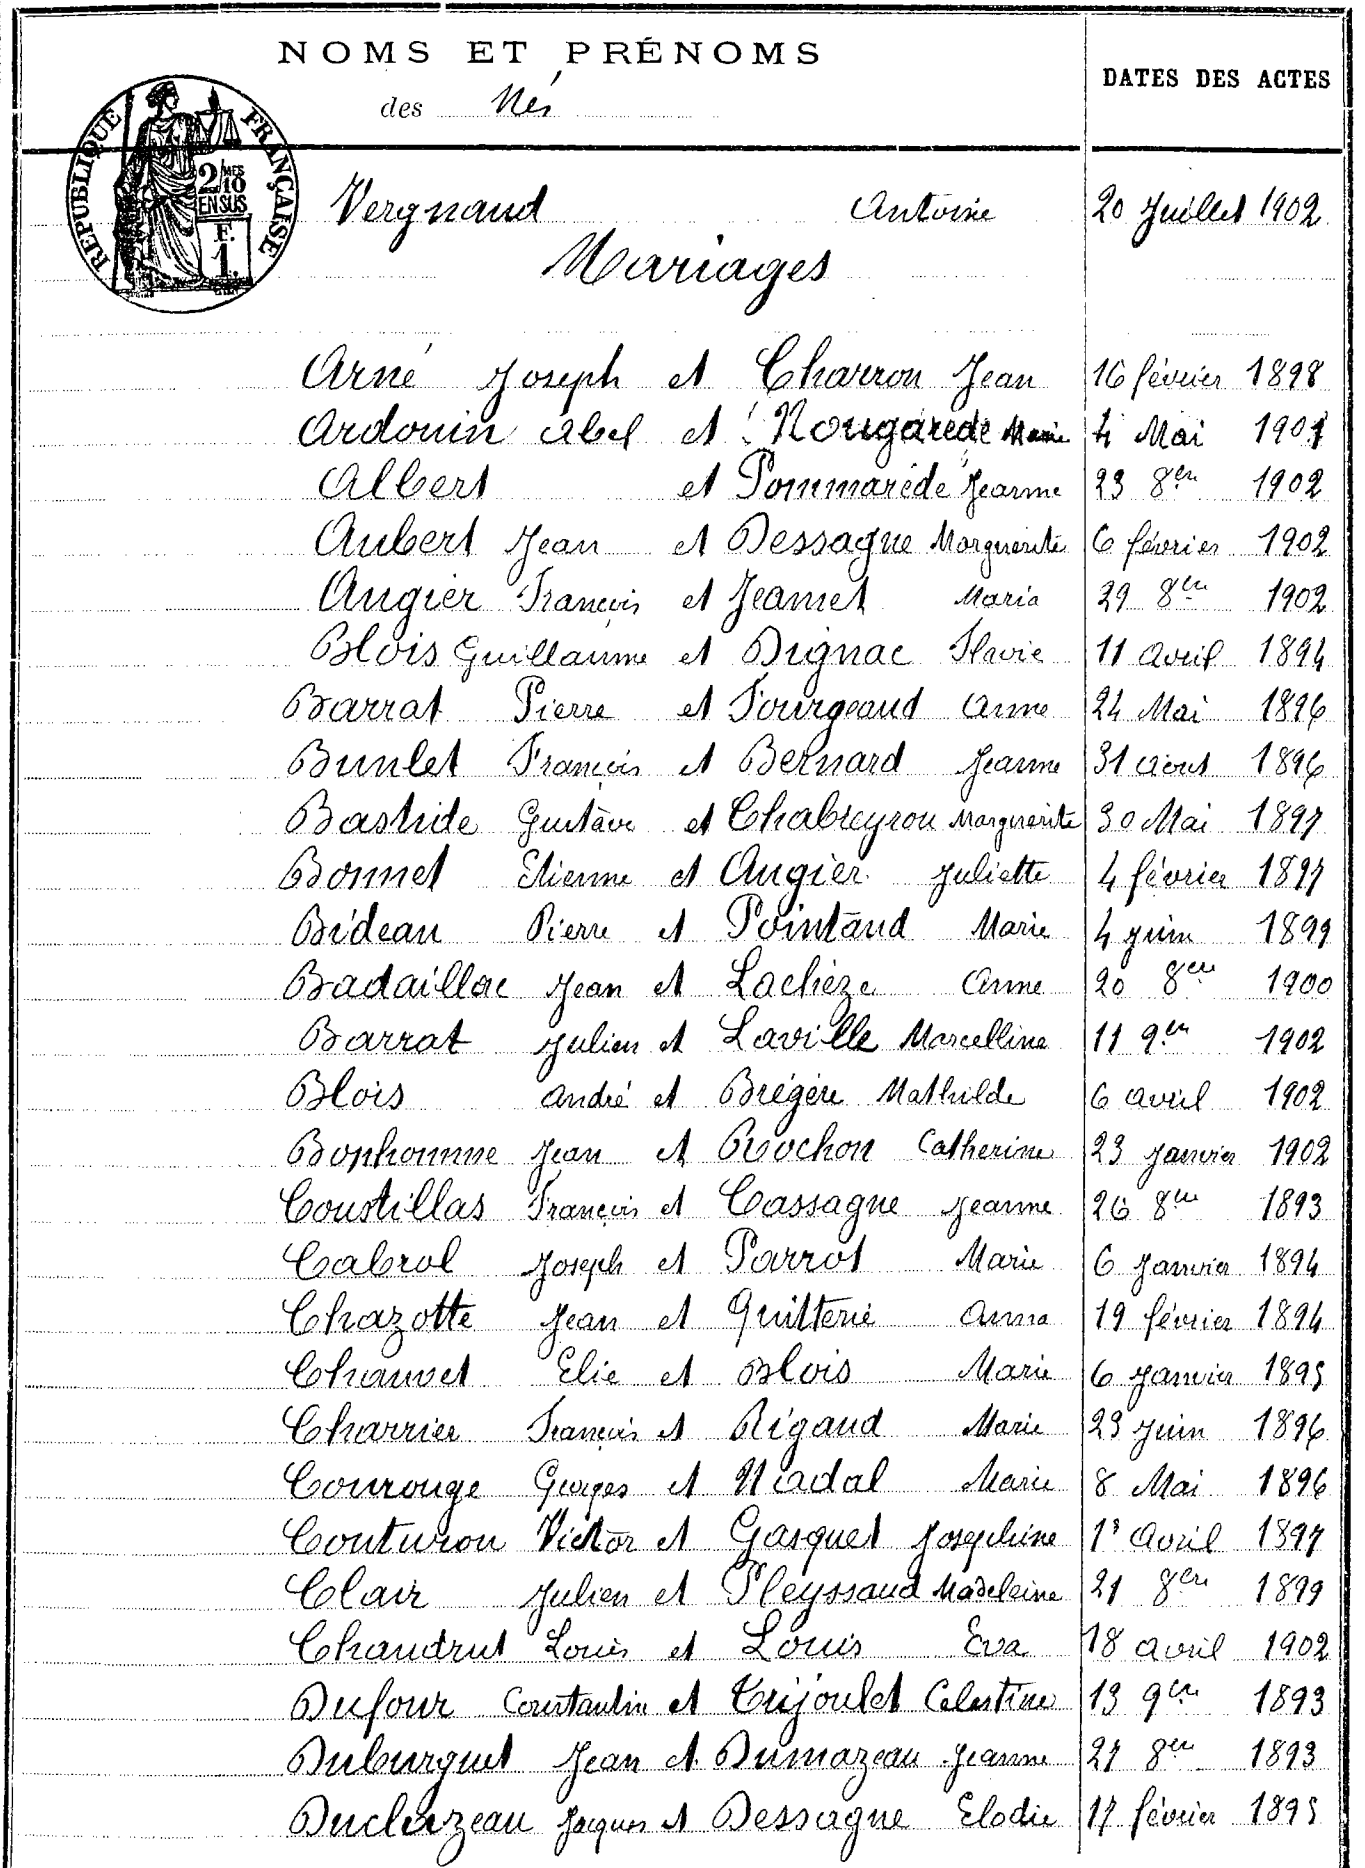 NOMS ET PRÉNOMS
des Nés
DATES DES ACTES
RÉPUBLIQUE FRANÇAISE
2/10 MES
EN SUS
F.
1.
Vergnaud Antoine 20 Juillet 1902
Mariages
Arné Joseph et Charron Jean 16 février 1898
Ardouin Abel et Nougarède Marie 4 Mai 1901
Albert et Pommarède Jeanne 23 8bre 1902
Aubert Jean et Dessagne Marguerite 6 février 1902
Augier François et Jeamet Maria 29 8bre 1902
Blois Guillaume et Dignac Flavie 11 avril 1894
Barrat Pierre et Fourgeaud Anne 24 Mai 1896
Bunlet François et Bernard Jeanne 31 août 1896
Bastide Gustave et Chabreyrou Marguerite 30 Mai 1897
Bonnet Etienne et Augier Juliette 4 février 1897
Bideau Pierre et Pointaud Marie 4 juin 1899
Badaillac Jean et Lachièze Anne 20 8bre 1900
Barrat Julien et Laville Marcelline 11 9bre 1902
Blois André et Brégère Mathilde 6 avril 1902
Bonhomme Jean et Rochon Catherine 23 janvier 1902
Coustillas François et Cassagne Jeanne 26 8bre 1893
Cabrol Joseph et Parrot Marie 6 Janvier 1894
Chazotte Jean et Quitterie Anna 19 février 1894
Chauvet Elie et Blois Marie 6 Janvier 1895
Charrier François et Rigaud Marie 23 Juin 1896
Courouge Georges et Nadal Marie 8 Mai 1896
Couturon Victor et Gasquet Joséphine 1r Avril 1897
Clair Julien et Pleyssaud Madeleine 21 8bre 1899
Chaudrut Louis et Louis Eva 18 avril 1902
Dufour Constantin et Trijoulet Celestine 13 9bre 1893
Duburguet Jean et Dumazeau Jeanne 27 8bre 1893
Ducluzeau Jacques et Dessagne Elodie 17 février 1895